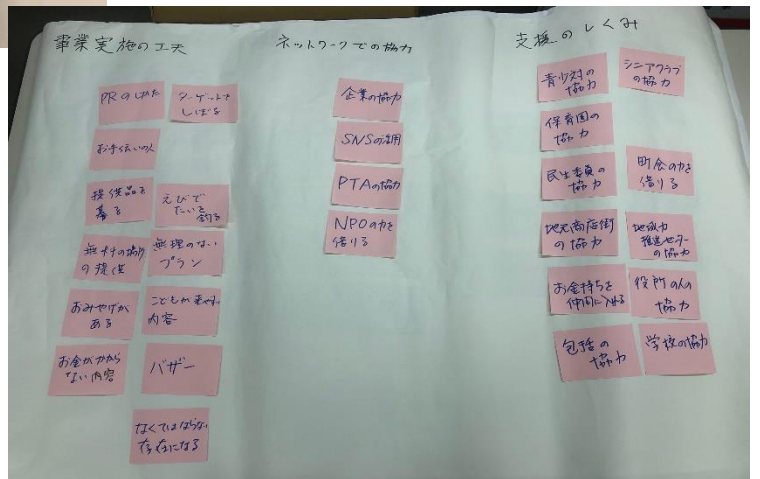 事業実施の工夫
PRのしかた
ターゲットを
しぼる
お手伝いの人
提供品を
募る
えびで
たいを
釣る
無料の場所
の提供
無理のない
プラン
おみやげが
ある
こどもが喜ぶ
内容
お金がかから
ない内容
バザー
なくてはならない
存在になる
ネットワークでの協力
企業の協力
SNSの活用
PTAの協力
NPOの力を
借りる
支援のしくみ
青少対の
協力
シニアクラブ
の協力
保育園の
協力
民生委員の
協力
町会の力を
借りる
地元商店街
の協力
地域力
推進センター
の協力
お金持ちを
仲間に入れる
役所の人の
協力
包括の
協力
学校の協力